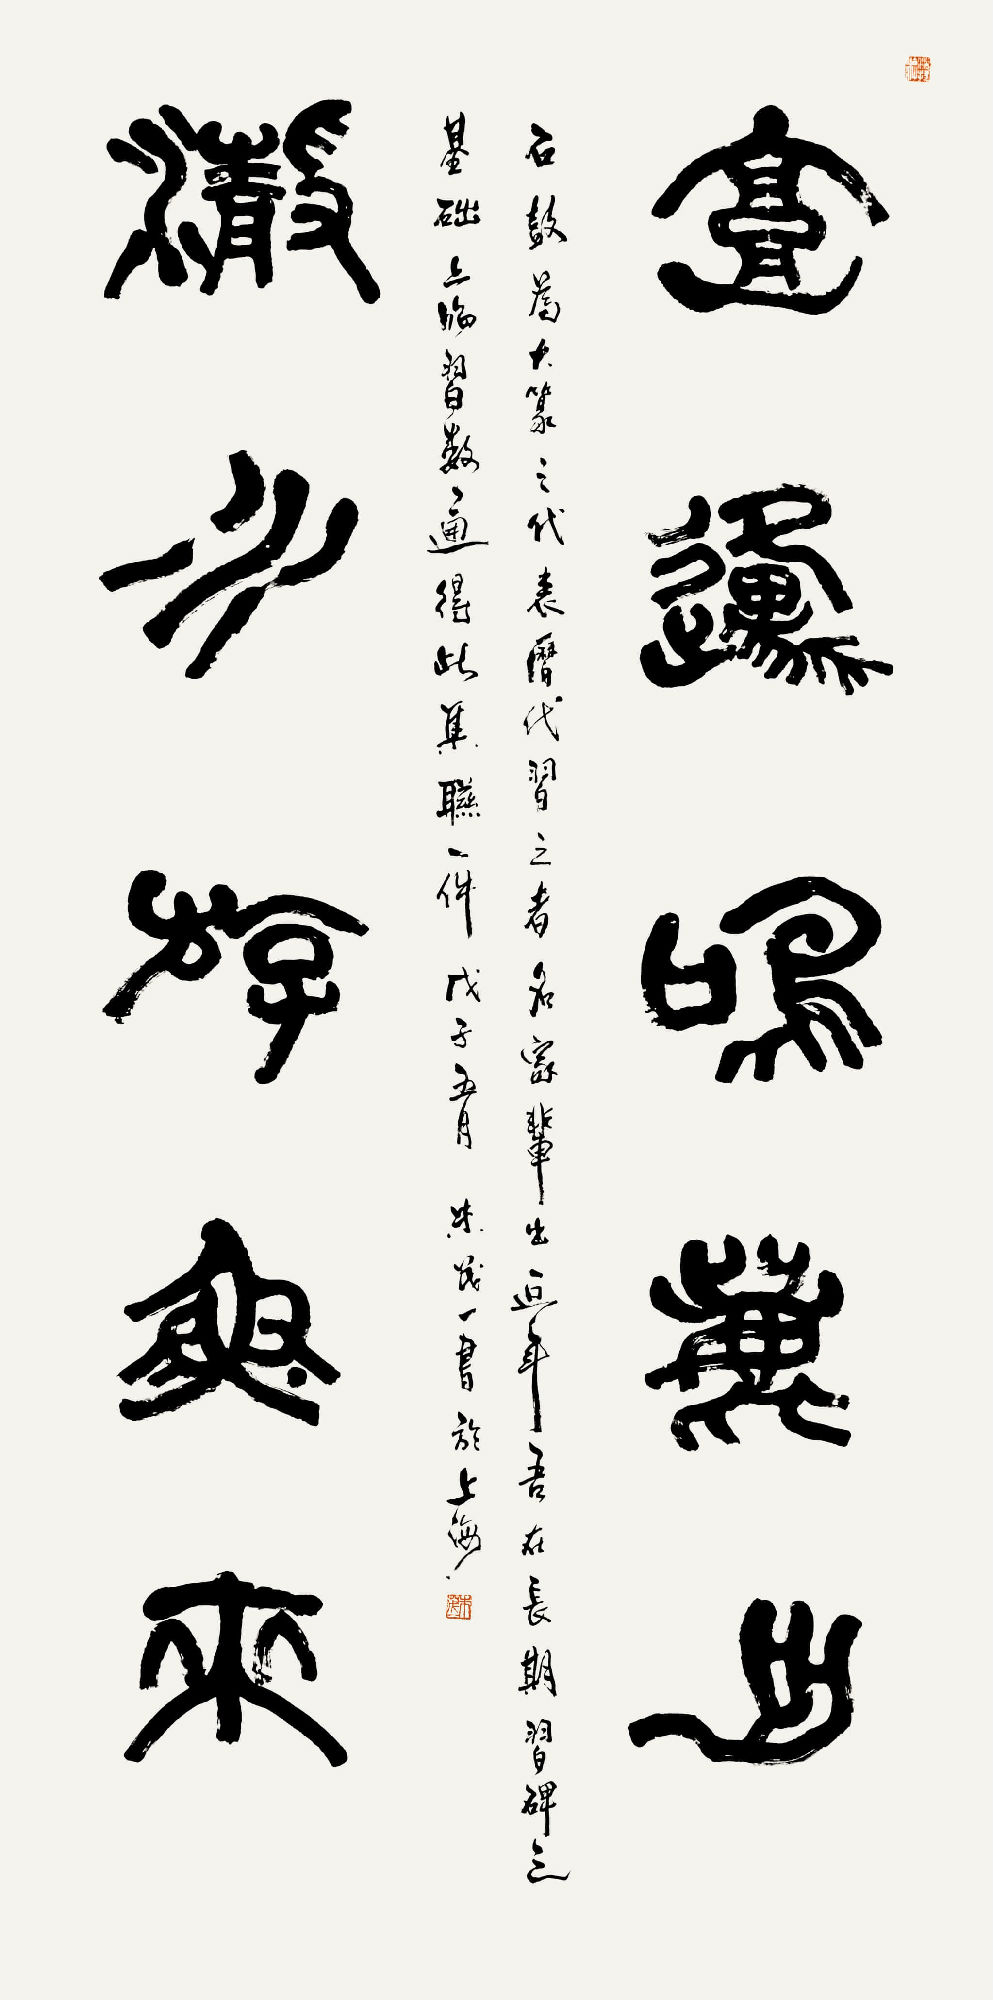 邍鳴
石鼓為大篆之代表曆代習之者名家輩出近年吾在長期習碑之
基础上临習数通得此集聯一件戊子五月 朱茂一書於上海
水游來